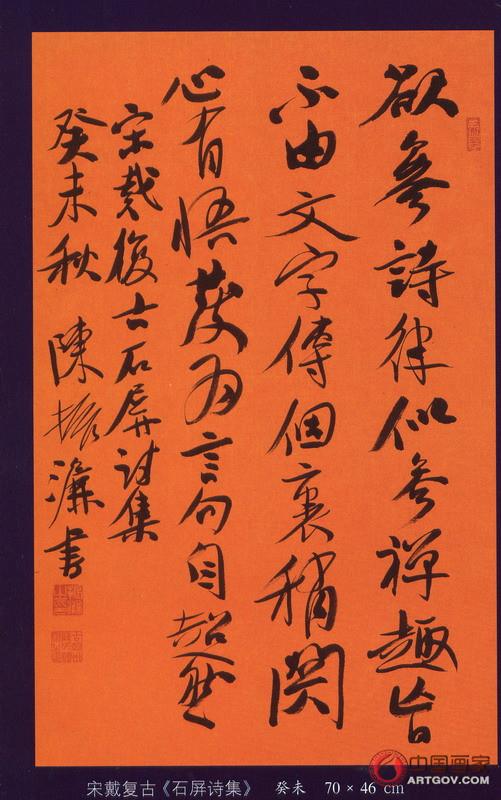 欲參詩律似參禪趣旨
不由文字傳個裏稍関
心有悟發為言句自超然
宋戴復古石屏詩集
癸未秋 陳振濂書
中国画家
ARTGOV.COM
宋戴复古《石屏诗集》 癸未 70 × 46 cm